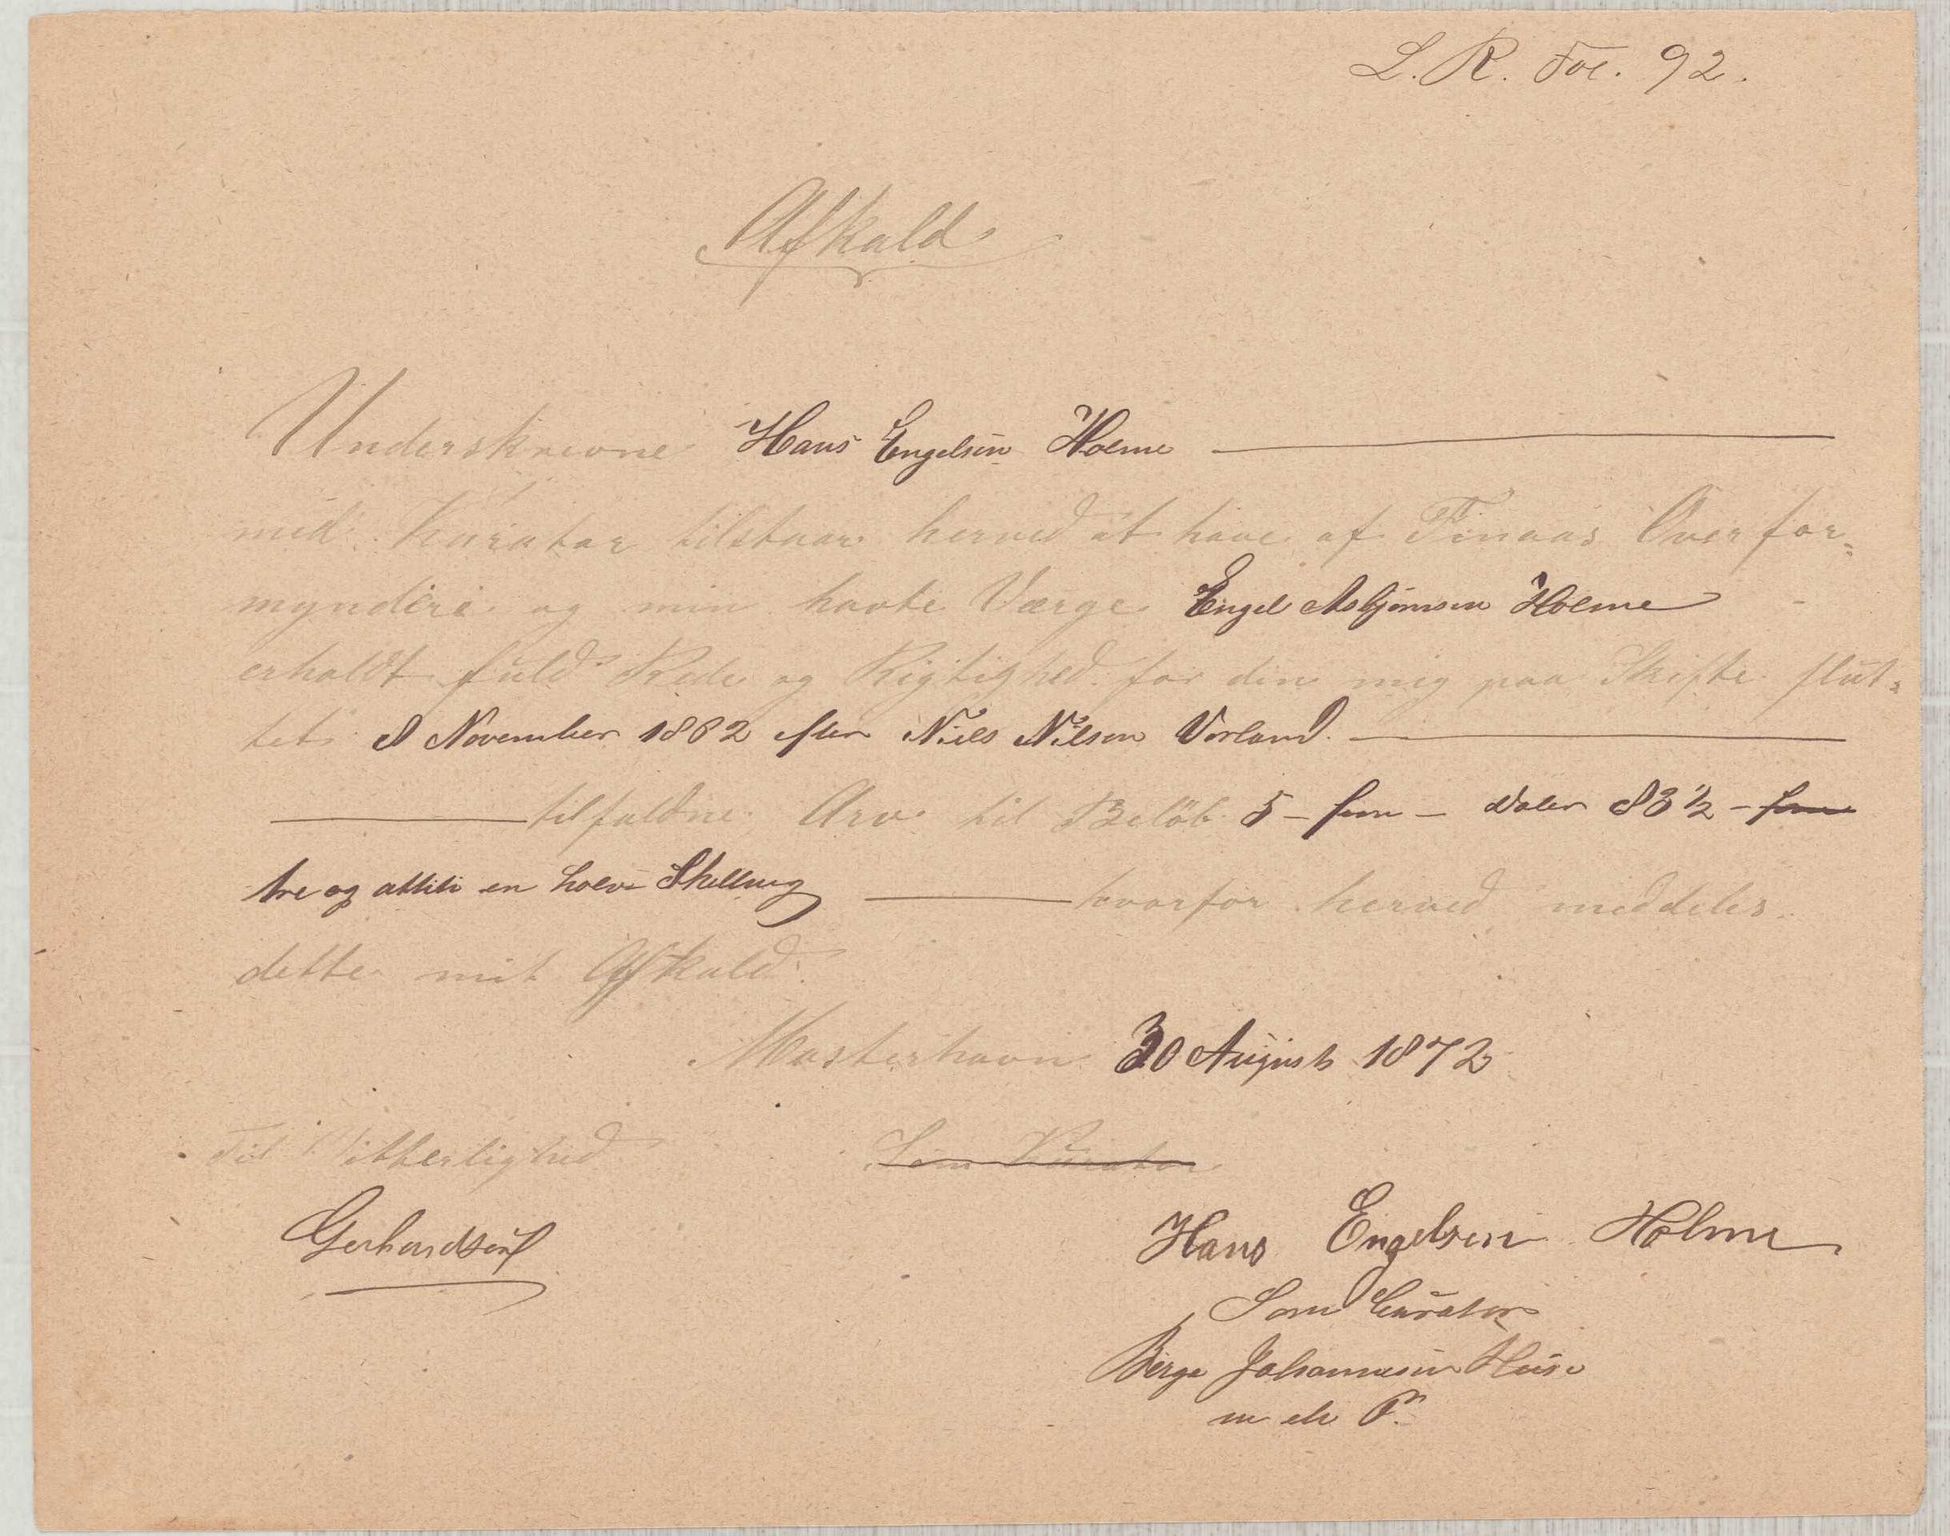 L. R. Fol. 92.
Afkald
Underskrevne Hans Engelsen Holme
med Kurator tilstaar herved at have af Finaas Overfor-
mynderi og min havte Værge Engel Asbjørnsen Holme
erholdt fuld Rede og Rigtighed for den mig paa Skifte slut-
tet 8 November 1862 efter Niels Nilsen Vorland
tilfaldne Arv til Beløb 5 - fem - Daler 83 ½ - fem
tre og attiti en halv Skilling hvorfor herved meddeles
dette mit Afkald.
Mosterhavn 30 August 1872
Til Vitterlighed Som Kurator
Gerhardsen Hans Engelsen Holme
Som Curator
Børge Johannesen Huse
m. P.